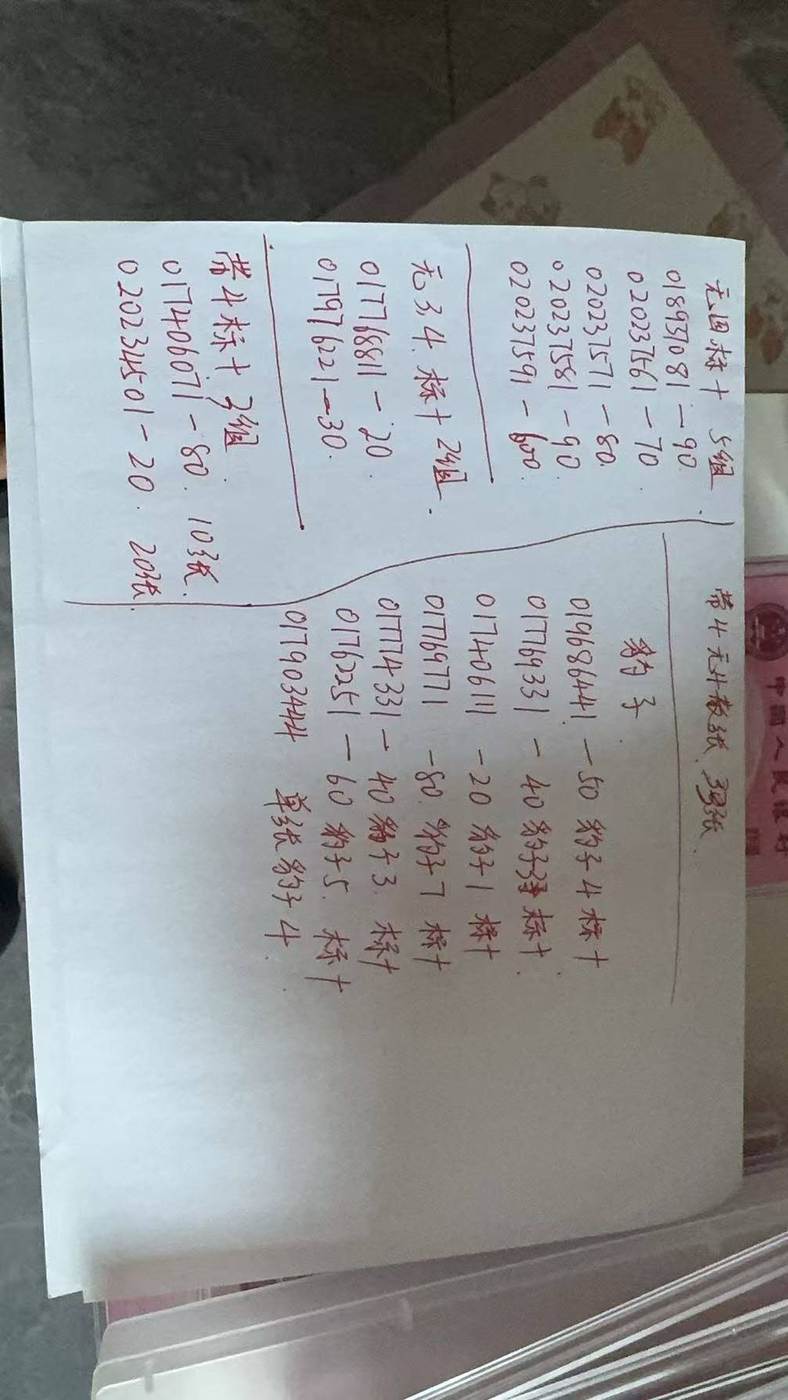 无四标十 5组.
018937081-90
020237561-70.
020237571-80.
020237581-90.
020237591-600.
无3.4.标十2组.
017768811-20.
017976221-30.
带4标十3组
017406071-80. 10张.
020234501-20. 20张.
带4无4散张.
豹子.
019686441-50 豹子4标十
017769331-40 豹子 标十.
017406111-20 豹子1 标十
017769771-80.豹子7 标十
017774331-40 豹子3. 标十
-60 豹子5. 标十
017903444 单张豹子4.
中國人民銀行